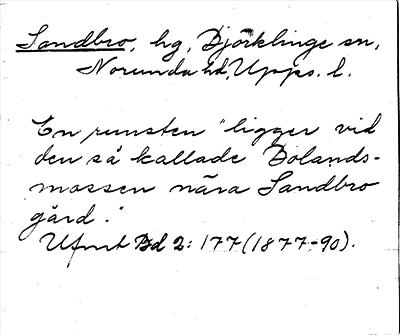 Sandbro, hg, Björklinge sn,
Norunda hd, Upps. l.
En runsten "ligger vid
den så kallade Dolands-
mossen nära Sandbro
gård."
Ufmt Bd 2: 177 (1877-90).